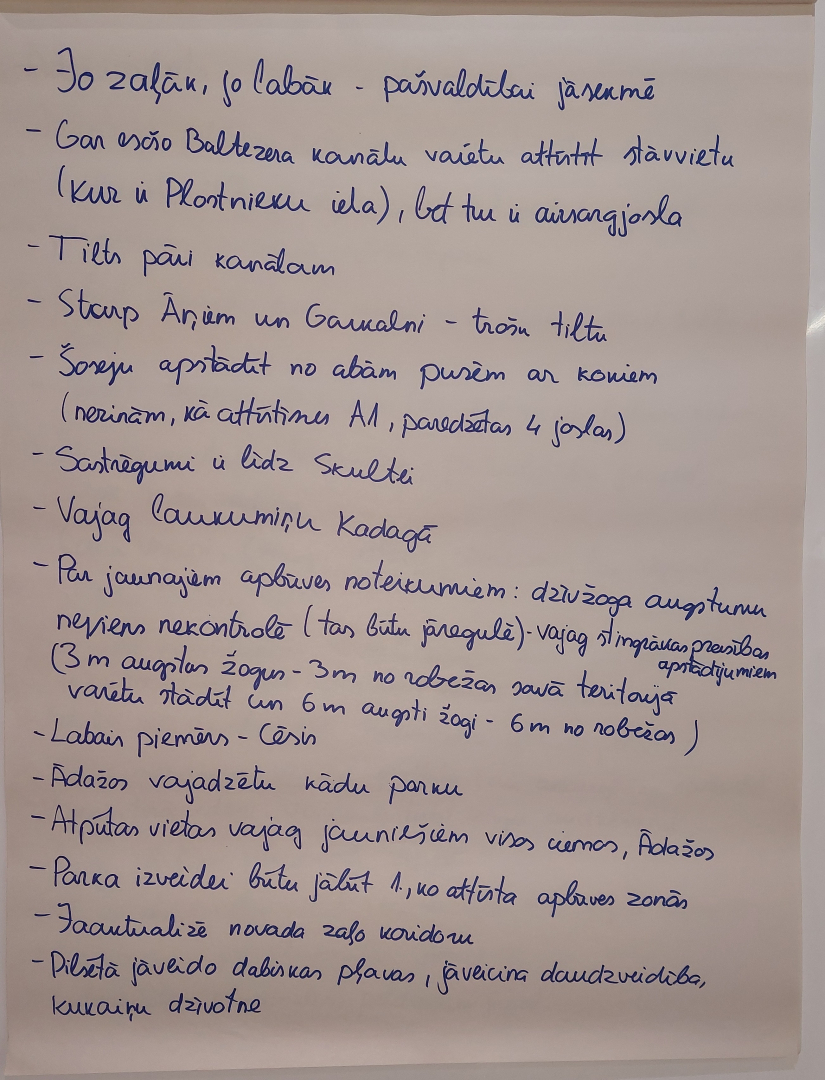 - Jo zaļāk, jo labāk - pašvaldībai jāsekmē
- Gar esošo Baltezera kanālu varētu attīstīt stāvvietu
(kur ir Plostnieku iela), bet tur ir aizsargjosla
- Tilts pāri kanālam
- Starp Āņiem un Garkalni - trošu tiltu
- Šoseju apstādīt no abām pusēm ar kokiem
(nezinām, kā attīstīsies A1, paredzētas 4 joslas)
- Sastrēgumi ir līdz Skultei
- Vajag laukumiņu Kadagā
- Par jaunajiem apbūves noteikumiem: dzīvžoga augstumu
neviens nekontrolē (tas būtu jāregulē) - vajag stingrākas prasības
apstādījumiem
(3 m augstas žogus - 3 m no robežas savā teritorijā
varētu stādīt un 6 m augsti žogi - 6 m no robežas)
- Labais piemērs - Cēsis
- Ādažos vajadzētu kādu parku
- Atpūtas vietas vajag jauniešiem visos ciemos, Ādažos
- Parka izveidei būtu jābūt 1., ko attīsta apbūves zonās
- Jāaktualizē novada zaļo koridoru
- Pilsētā jāveido dabiskas pļavas, jāveicina daudzveidība,
kukaiņu dzīvotne